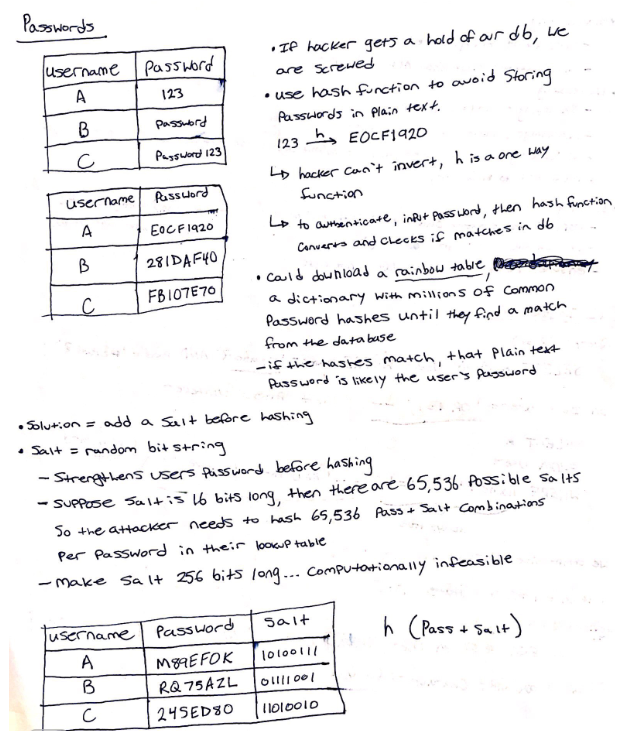 Passwords
username Password
A 123
B Password
C Password 123
username Password
A E0CF1920
B 281DAF40
C FB107E70
• If hacker gets a hold of our db, we
are screwed
• use hash function to avoid storing
Passwords in Plain text.
123 h→ E0CF1920
↳ hacker can't invert, h is a one way
function
↳ to authenticate, input password, then hash function
converts and checks if matches in db
• Could download a rainbow table,
a dictionary with millions of common
Password hashes until they find a match
from the database
- if the hashes match, that Plain text
Password is likely the user's Password
• Solution = add a salt before hashing
• Salt = random bit string
- Strengthens users Password before hashing
- suppose salt is 16 bits long, then there are 65,536 Possible Salts
So the attacker needs to hash 65,536 Pass + Salt combinations
Per Password in their lookup table
- make salt 256 bits long... computationally infeasible
username Password Salt
A M89EFOK 10100111
B RQ75AZL 01111001
C 245ED80 11010010
h (Pass + Salt)